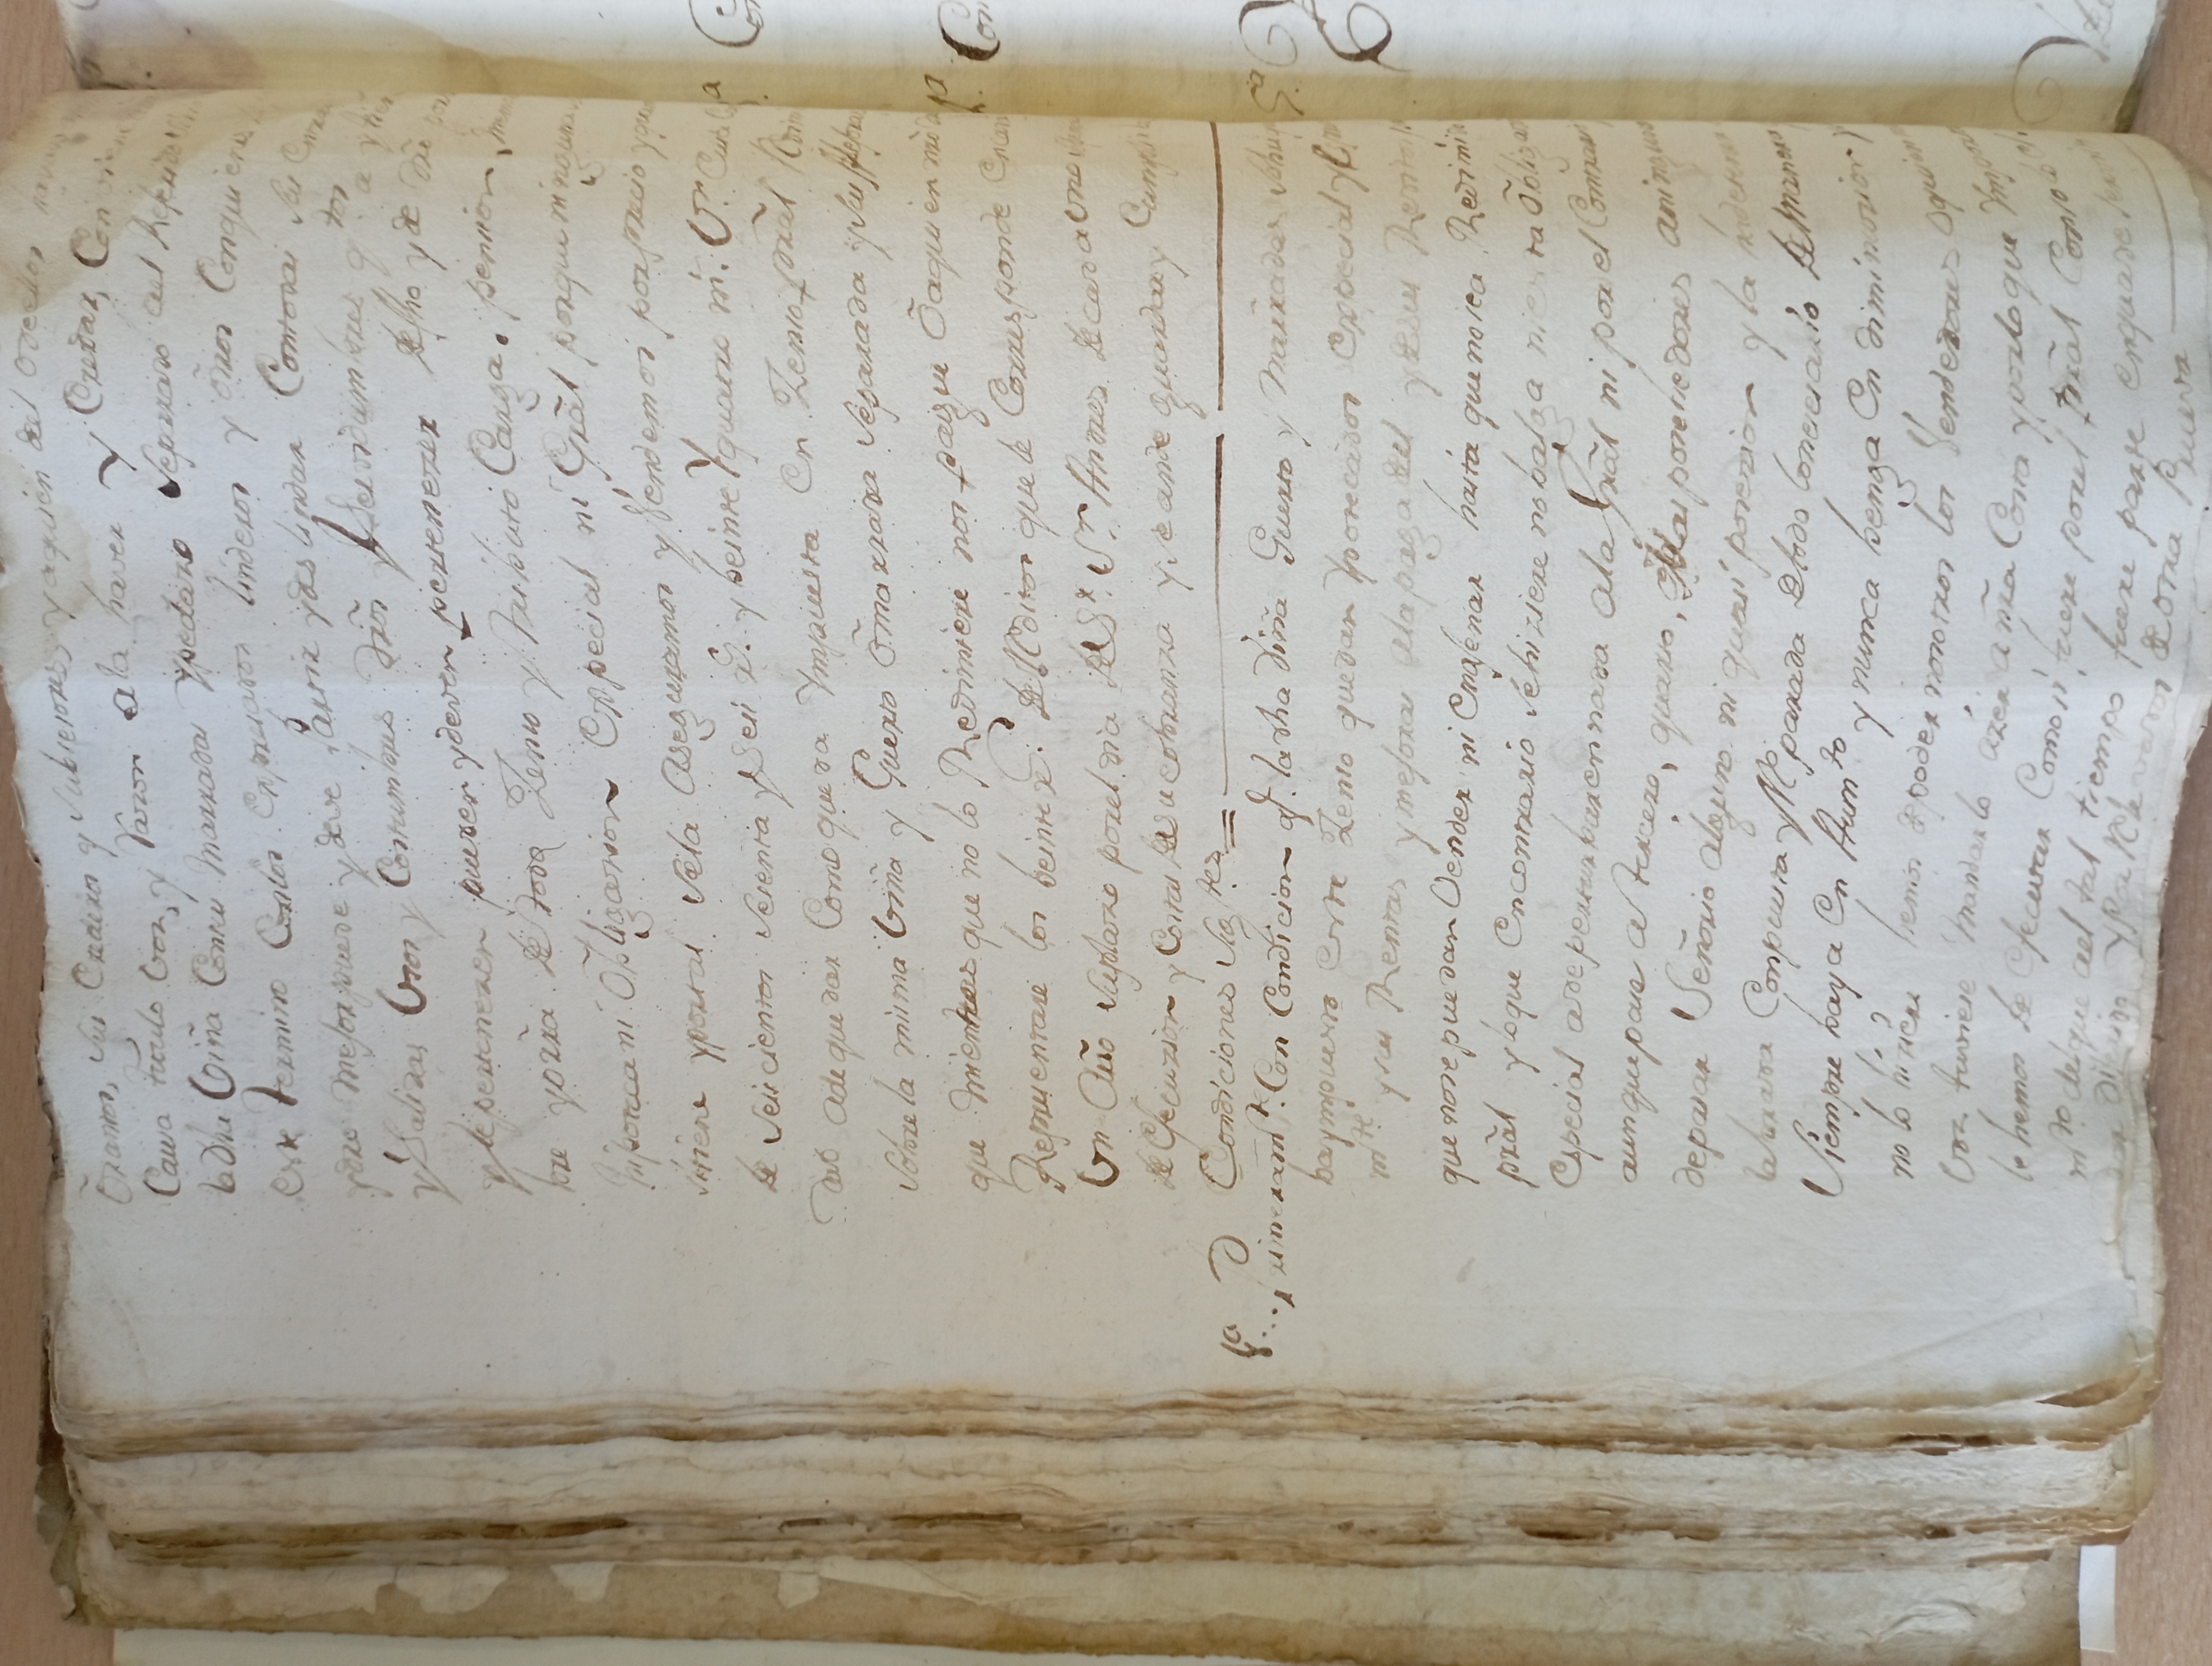 Õrantos, sus Erederos y subcesores, y aquien del o de ellos
Causa titulo voz, y razon ala haver y Eredar, Com
la dha Viña Consus Marradas y pedazo separado del Referido
este termino Conlos Expresados linderos y õtros Conquienes
y dro mejor puede y deve Partir y deslindar Contodas sus entra
y Salidas Usos y Costumbres drõs y servidumbres qtos a y tien
y le pertenezen pueden y deven pertenezer de fho y de drõ por
bre y orra de todo Zenso y tributo Carga. pension
Hipoteca ni Õbligazion Expecial ni Grãl porque ninguna
sitiene y por tal sela Aseguramos y Vendemos por precio y qua
de seiscientos sesenta y seis rs. y beinte y quatro ms. Vn. Cuia
dad a de quedar Como queda Ympuesta En Zenso prãl
sobre la misma Viña y Guerto õ marrada separada y sus Mejoras
que mientras que no lo Redimiere nos pague Õ aquien nrô
Representare los beinte rs. de Reditos que le Corresponde En cada
Un Año su plazo por el dia de Sr. Sn. Andres de cada Uno
de Ejecuzion y Costas de su cobranza y se ande guardar y Cumplir
Condiciones Sigtes =
1ª Primeramte. Con Condicion q. la dha Viña Guerto y Marradas sobre
ba ympuesto este Zenso quedan Ypotecados Expecial y
mte. y sus Rentas y mejoras ala paga del y de sus Reditos
que nose puedan Vender ni Enajenar hasta que no sea Redimido
prãl y lo que En contrario se hiziere no balga ni esta Õbliga
Especial a de perturbar en nada ala Grãl ni por el Contrari
aunque pase a tercero, quarto, Mas posehedores aninguno
de pasar Señorio alguno ni quasi posezion y la ha de tener
labrada Compuesta y Reparada de todo lo nesesario de Manera
Siempre baya En Aumto y nunca benga En diminuzion y
no lo hiziere hemos de poder nosotros los Vendedores o quien
voz tuviese Mandarlo azer a nrã Costa y por lo que Ympor
le hemos de Ejecutar Como si fuere por el prãl Con solo el
mto del que al tal tiempo fuere parte en qua de
Diferido y Por Relevados de otra Prueva